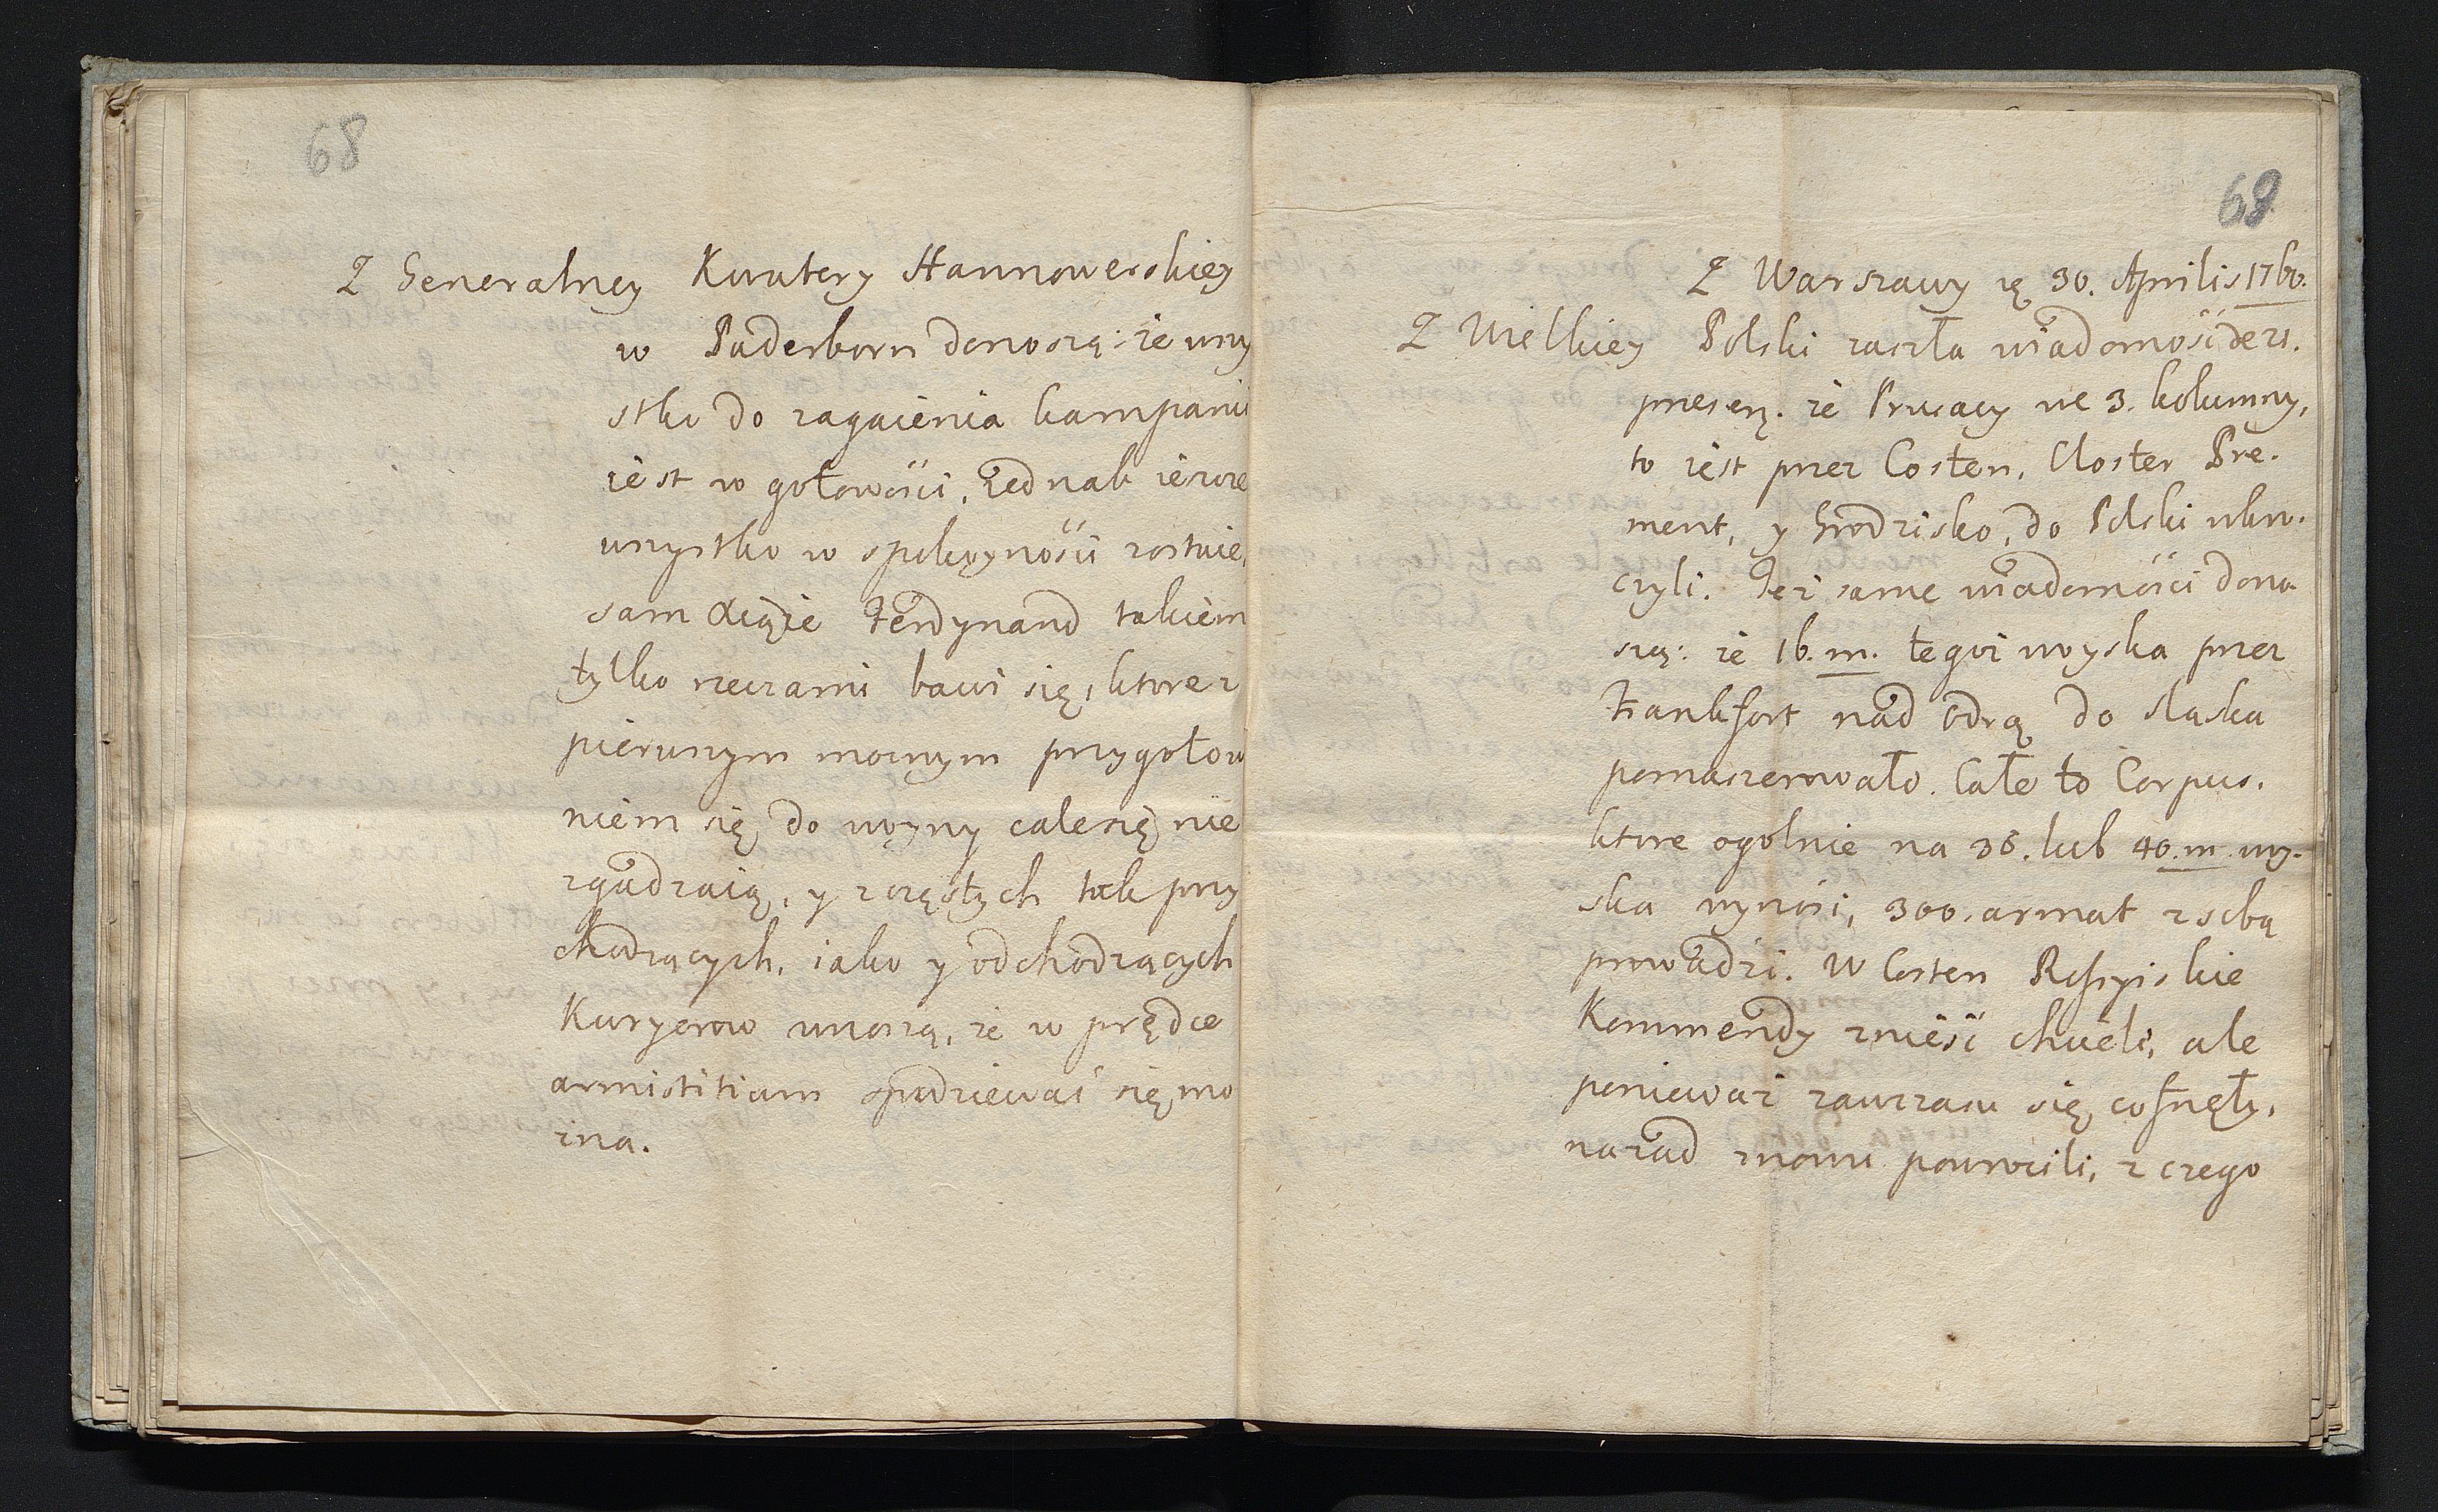 68
Z Generalney Kwatery Hannowerskiey
w Paderborn donoszą: że wszy
stko do zagaienia kampanii
iest w gotowości, iednak ieszcze
wszystko w spokoyności zostaie,
sam Xiąże Ferdynand takiem
tylko rzeczami bawi się, ktore z
pierwszym mocnym przygotow
niem się do woyny cale się nie
zgadzaią, y z częstych tak przy
chodzących, iako y odchodzących
Kuryerow wnoszą, że w prędce
armistitiam spodziewać się mo
żna.
69
Z Warszawy 30. Aprilis 1760.
Z Wielkiey Polski zaszła wiadomość de 21.
presen. że Prusacy we 3. kolumny,
to iest przez Costen, Closter Pre.
ment, y Grodzisko, do Polski wkro.
czyli. Też same wiadomości dono.
szą: że 16. m. tegoż woyska przez
Frankfort nad Odrą do Sląska
pomaszerowało. Całe to Corpus.
ktore ogolnie na 36. lub 40. m. woy.
ska wynosi, 300. armat z sobą
prowadzi. W Costen Rossyiskie
Kommendy znieść chcieli, ale
ponieważ zawczasu się cofnęły,
nazad znowu powrocili, z czego